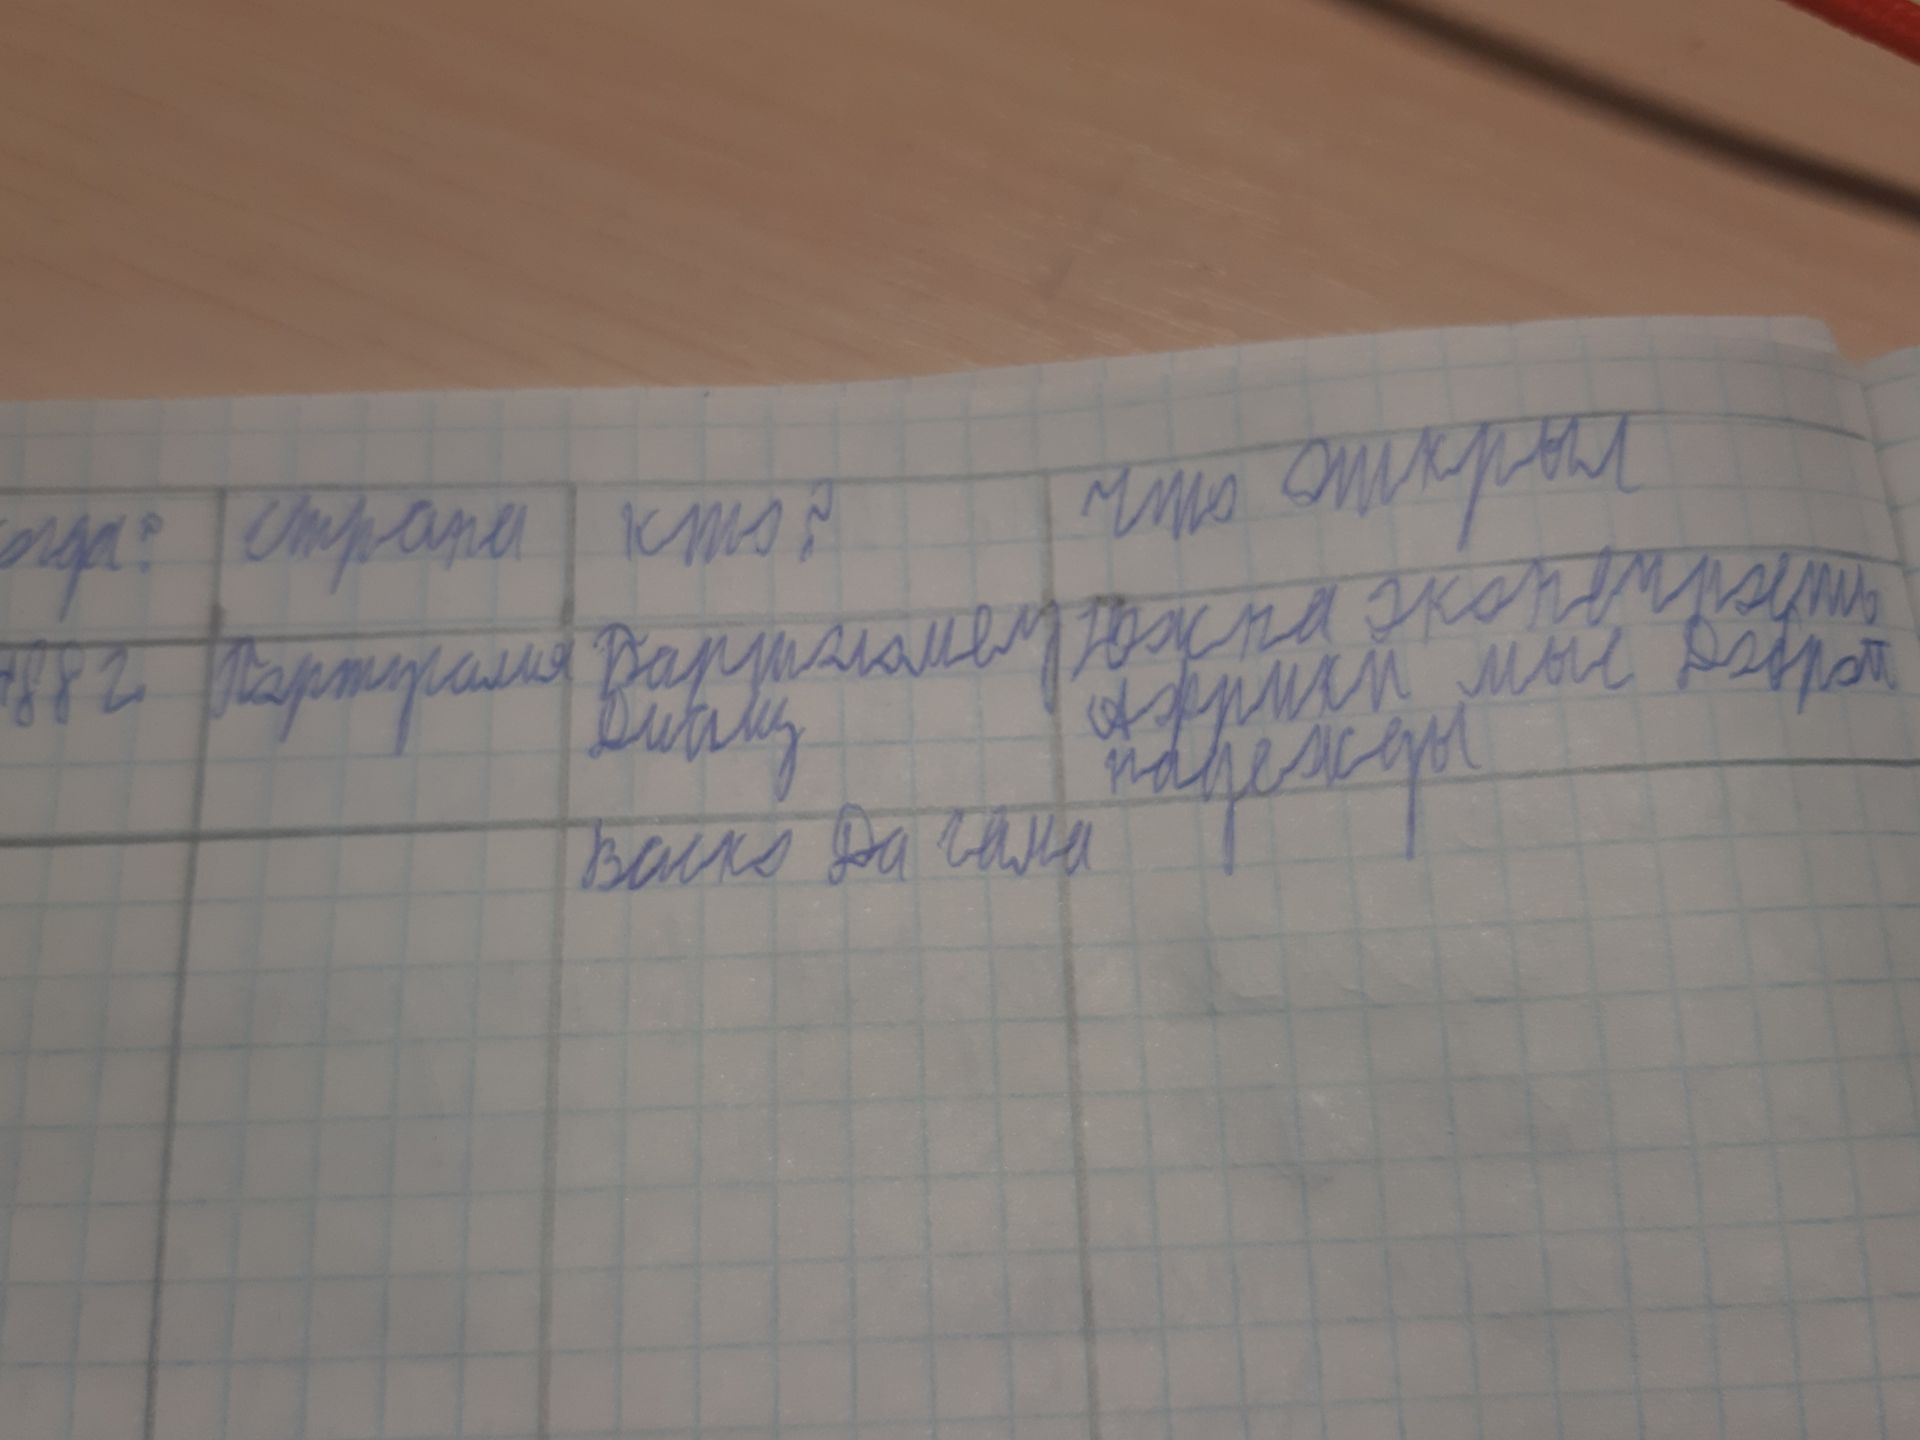 когда? страна кто? что открыл
1488 г. Португалия Бартоломеу Южна эконечность
Диаш Африки мыс Доброй
надежды
Васко Да гама